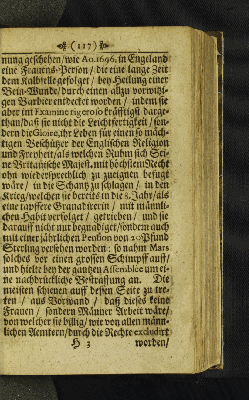 (117)
nung geschehen/wie Ao. 1696. in Engeland
eine Frauens-Person/ die eine lange Zeit
dem Kalbfelle gefolget/ bey Heilung einer
Bein-Wunde/durch einen allzu vorwitzi-
gen Barbier entdecket worden / indem sie
aber im Examine rigeroso kräfftigst darge-
than/daß sie nicht die Leichtfertigkeit/ son-
dern die Gloire, ihr Leben für einen so mäch-
tigen Beschützer der Englischen Religion
und Freyheit/als welchen Ruhm sich Sei-
ne Britanische Majest. mit höchstem Recht
ohn wiedersprechlich zu zueignen befugt
wäre/ in die Schantz zu schlagen/ in den
Krieg/welchen sie bereits in die 8. Jahr/als
eine tapffere Granadirerin / mit männli-
chen Habit verfolget / getrieben/ und sie
darauff nicht nur begnadiget/sondern auch
mit einer jährlichen Pension von 20 Pfund
Sterling versehen worden: so nahm Mars
solches vor einen grossen Schimpff auff/
und hielte bey der gantzen Assemblée um ei-
ne nachdrückliche Bestraffung an. Die
meisten schienen auff dessen Seite zu tre-
ten / aus Vorwand / daß dieses keine
Frauen / sondern Männer Arbeit wäre/
von welcher sie billig/ wie von allen männ-
lichen Aemtern/ durch die Rechte excludirt
H 3 worden/